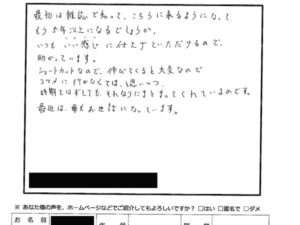 最初は雑誌で知って、こちらに来るようになって
もう5年以上になるでしょうか。
いつもいい感じに仕上げていただけるので、
助かっています。
ショートカットなので、伸びてくると大変なので
コマメに行かなくては、と思いつつ、
時期をはずしても、それなりにまとまってくれているのです。
最近は、娘もお世話になっています。
※ あなた様の声を、ホームページなどでご紹介してもよろしいですか？ □はい □匿名で □ダメ
お 名 前